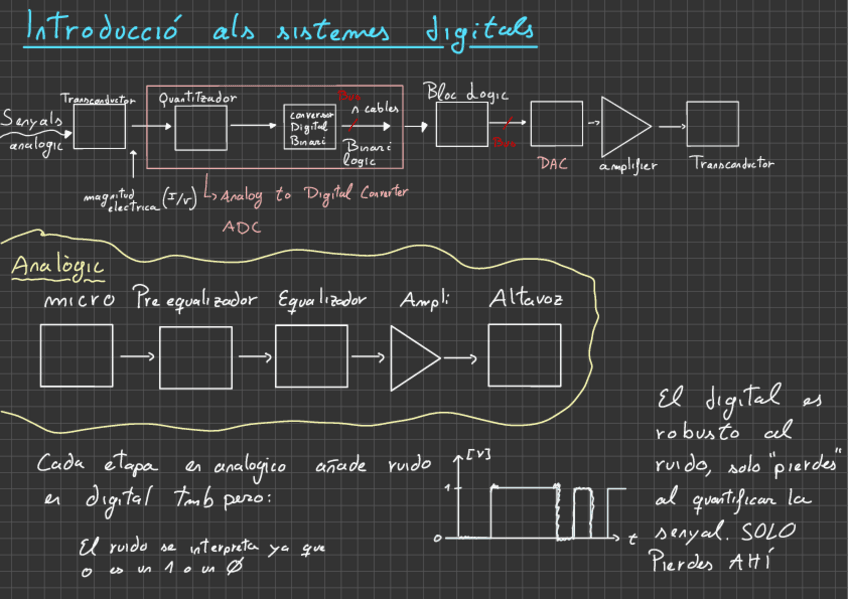 Introducció als sistemes digitals
Senyals
analogic
Transconductor
magnitud
electrica (I/V)
Quantitzador
conversor
Digital
Binari
Bus
n cables
Binari
logic
Analog to Digital Converter
ADC
Bloc Logic
Bus
DAC
amplifier
Transconductor
Analògic
micro
Pre equalizador
Equalizador
Ampli
Altavoz
Cada etapa en analogico añade ruido
en digital tmb pero:
El ruido se interpreta ya que
o es un 1 o un Ø
[V]
1
0
t
El digital es
robusto al
ruido, solo "pierdes"
al quantificar la
senyal. SOLO
Pierdes AHÍ